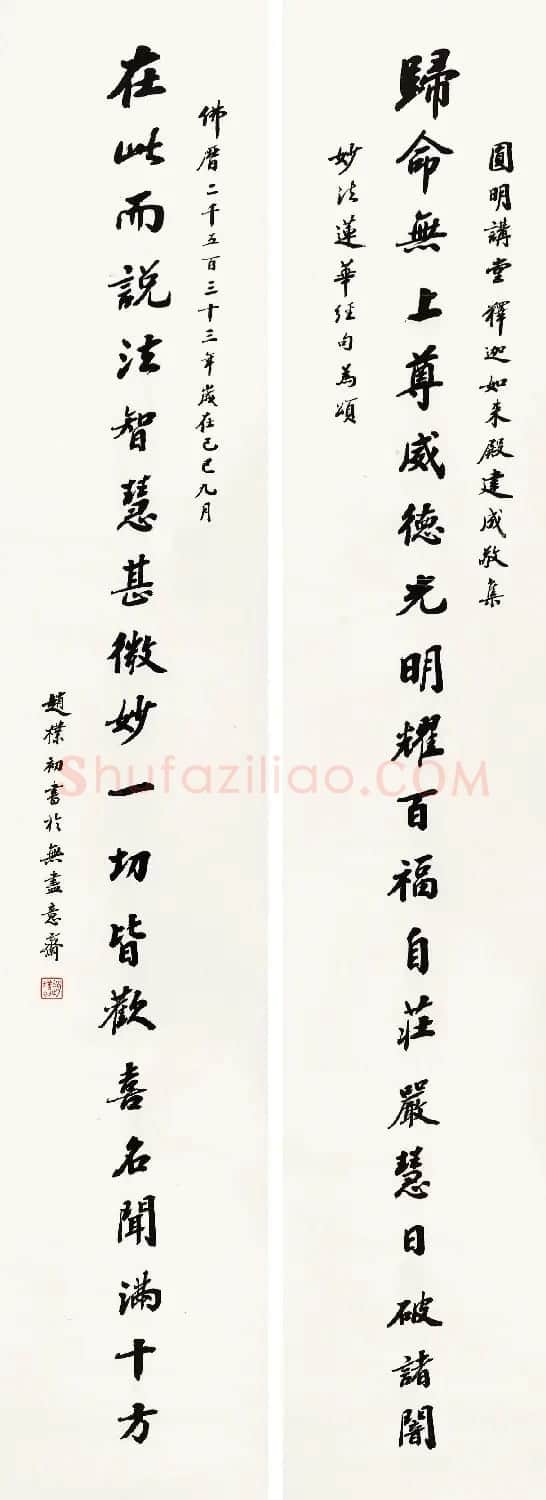 圓明講堂釋迦如来殿建成敬集
歸命無上尊威德光明耀百福自莊嚴慧日破諸闇
妙法蓮華经句為頌
佛曆二千五百三十三年歲在己巳九月
在此而説法智慧甚微妙一切皆歡喜名聞滿十方
趙樸初書於無盡意齋
Shufaziliao.COM